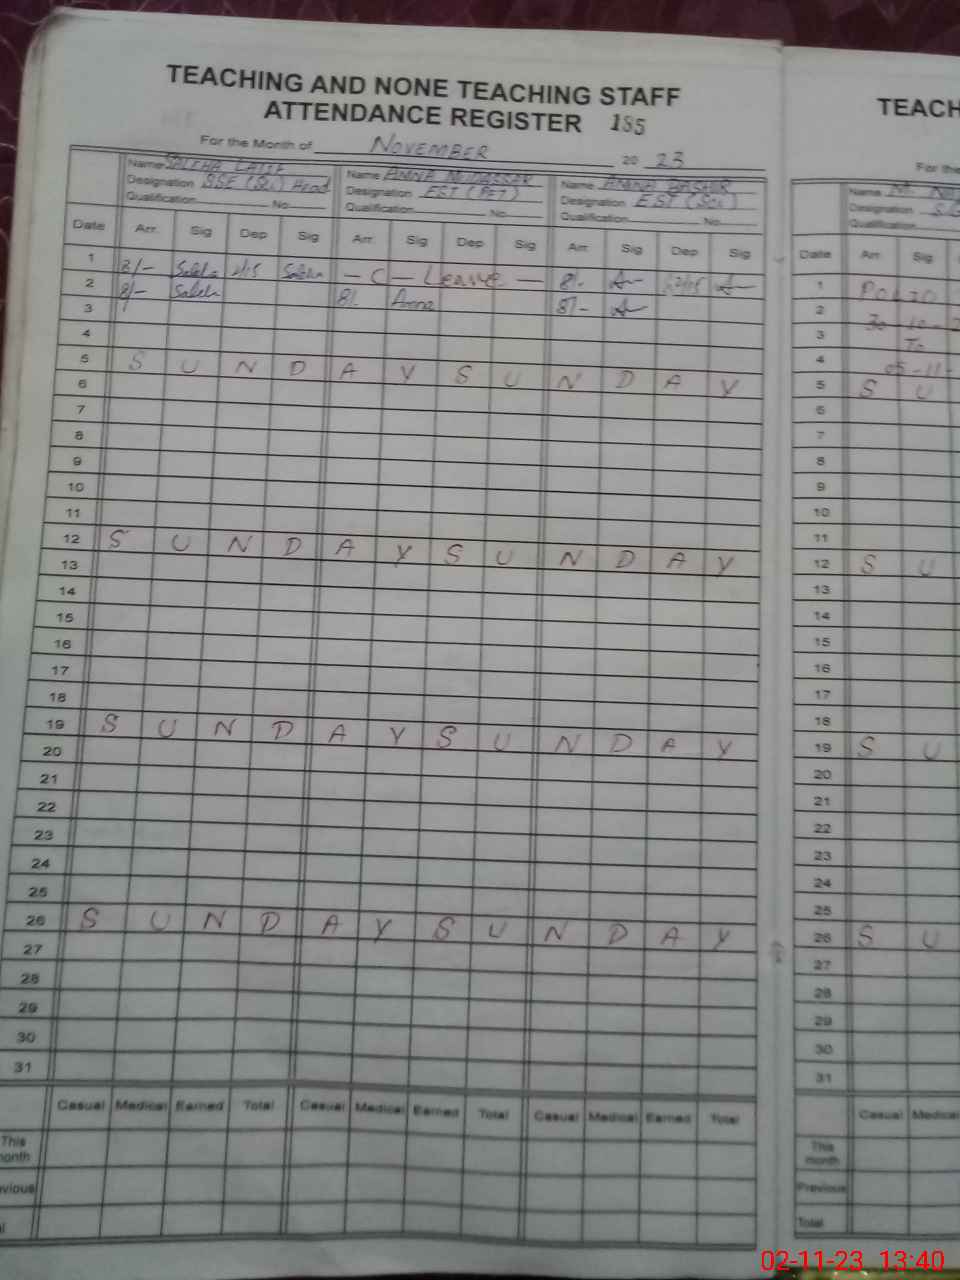 TEACHING AND NONE TEACHING STAFF
ATTENDANCE REGISTER 185
For the Month of NOVEMBER 20 23
Name SALEHA LATIF Name AMNA MUDASSAR Name AMNA BASHIR
Designation SSE (Sci) Head Designation EST (PET) Designation EST (Sci)
Qualification No Qualification No Qualification No
Date Arr. Sig Dep Sig Arr. Sig Dep Sig Arr. Sig Dep Sig
1 8/- Saleha 2/15 Saleha - C - Leave - 8/- 2/15
2 8/- Saleh 8/. Amna 8/-
3
4
5 S U N D A Y S U N D A Y
6
7
8
9
10
11
12 S U N D A Y S U N D A Y
13
14
15
16
17
18
19 S U N D A Y S U N D A Y
20
21
22
23
24
25
26 S U N D A Y S U N D A Y
27
28
29
30
31
Casual Medical Earned Total Casual Medical Earned Total Casual Medical Earned Total
This
onth
vious
l
TEACH
For the
Name
Designation
Qualification
Date Arr. Sig
1 POLIO
2 30-10-2
3 To
4 05-11-
5 S U
6
7
8
9
10
11
12 S U
13
14
15
16
17
18
19 S U
20
21
22
23
24
25
26 S U
27
28
29
30
31
Casual Medical
This
month
Previous
Total
02-11-23 13:40